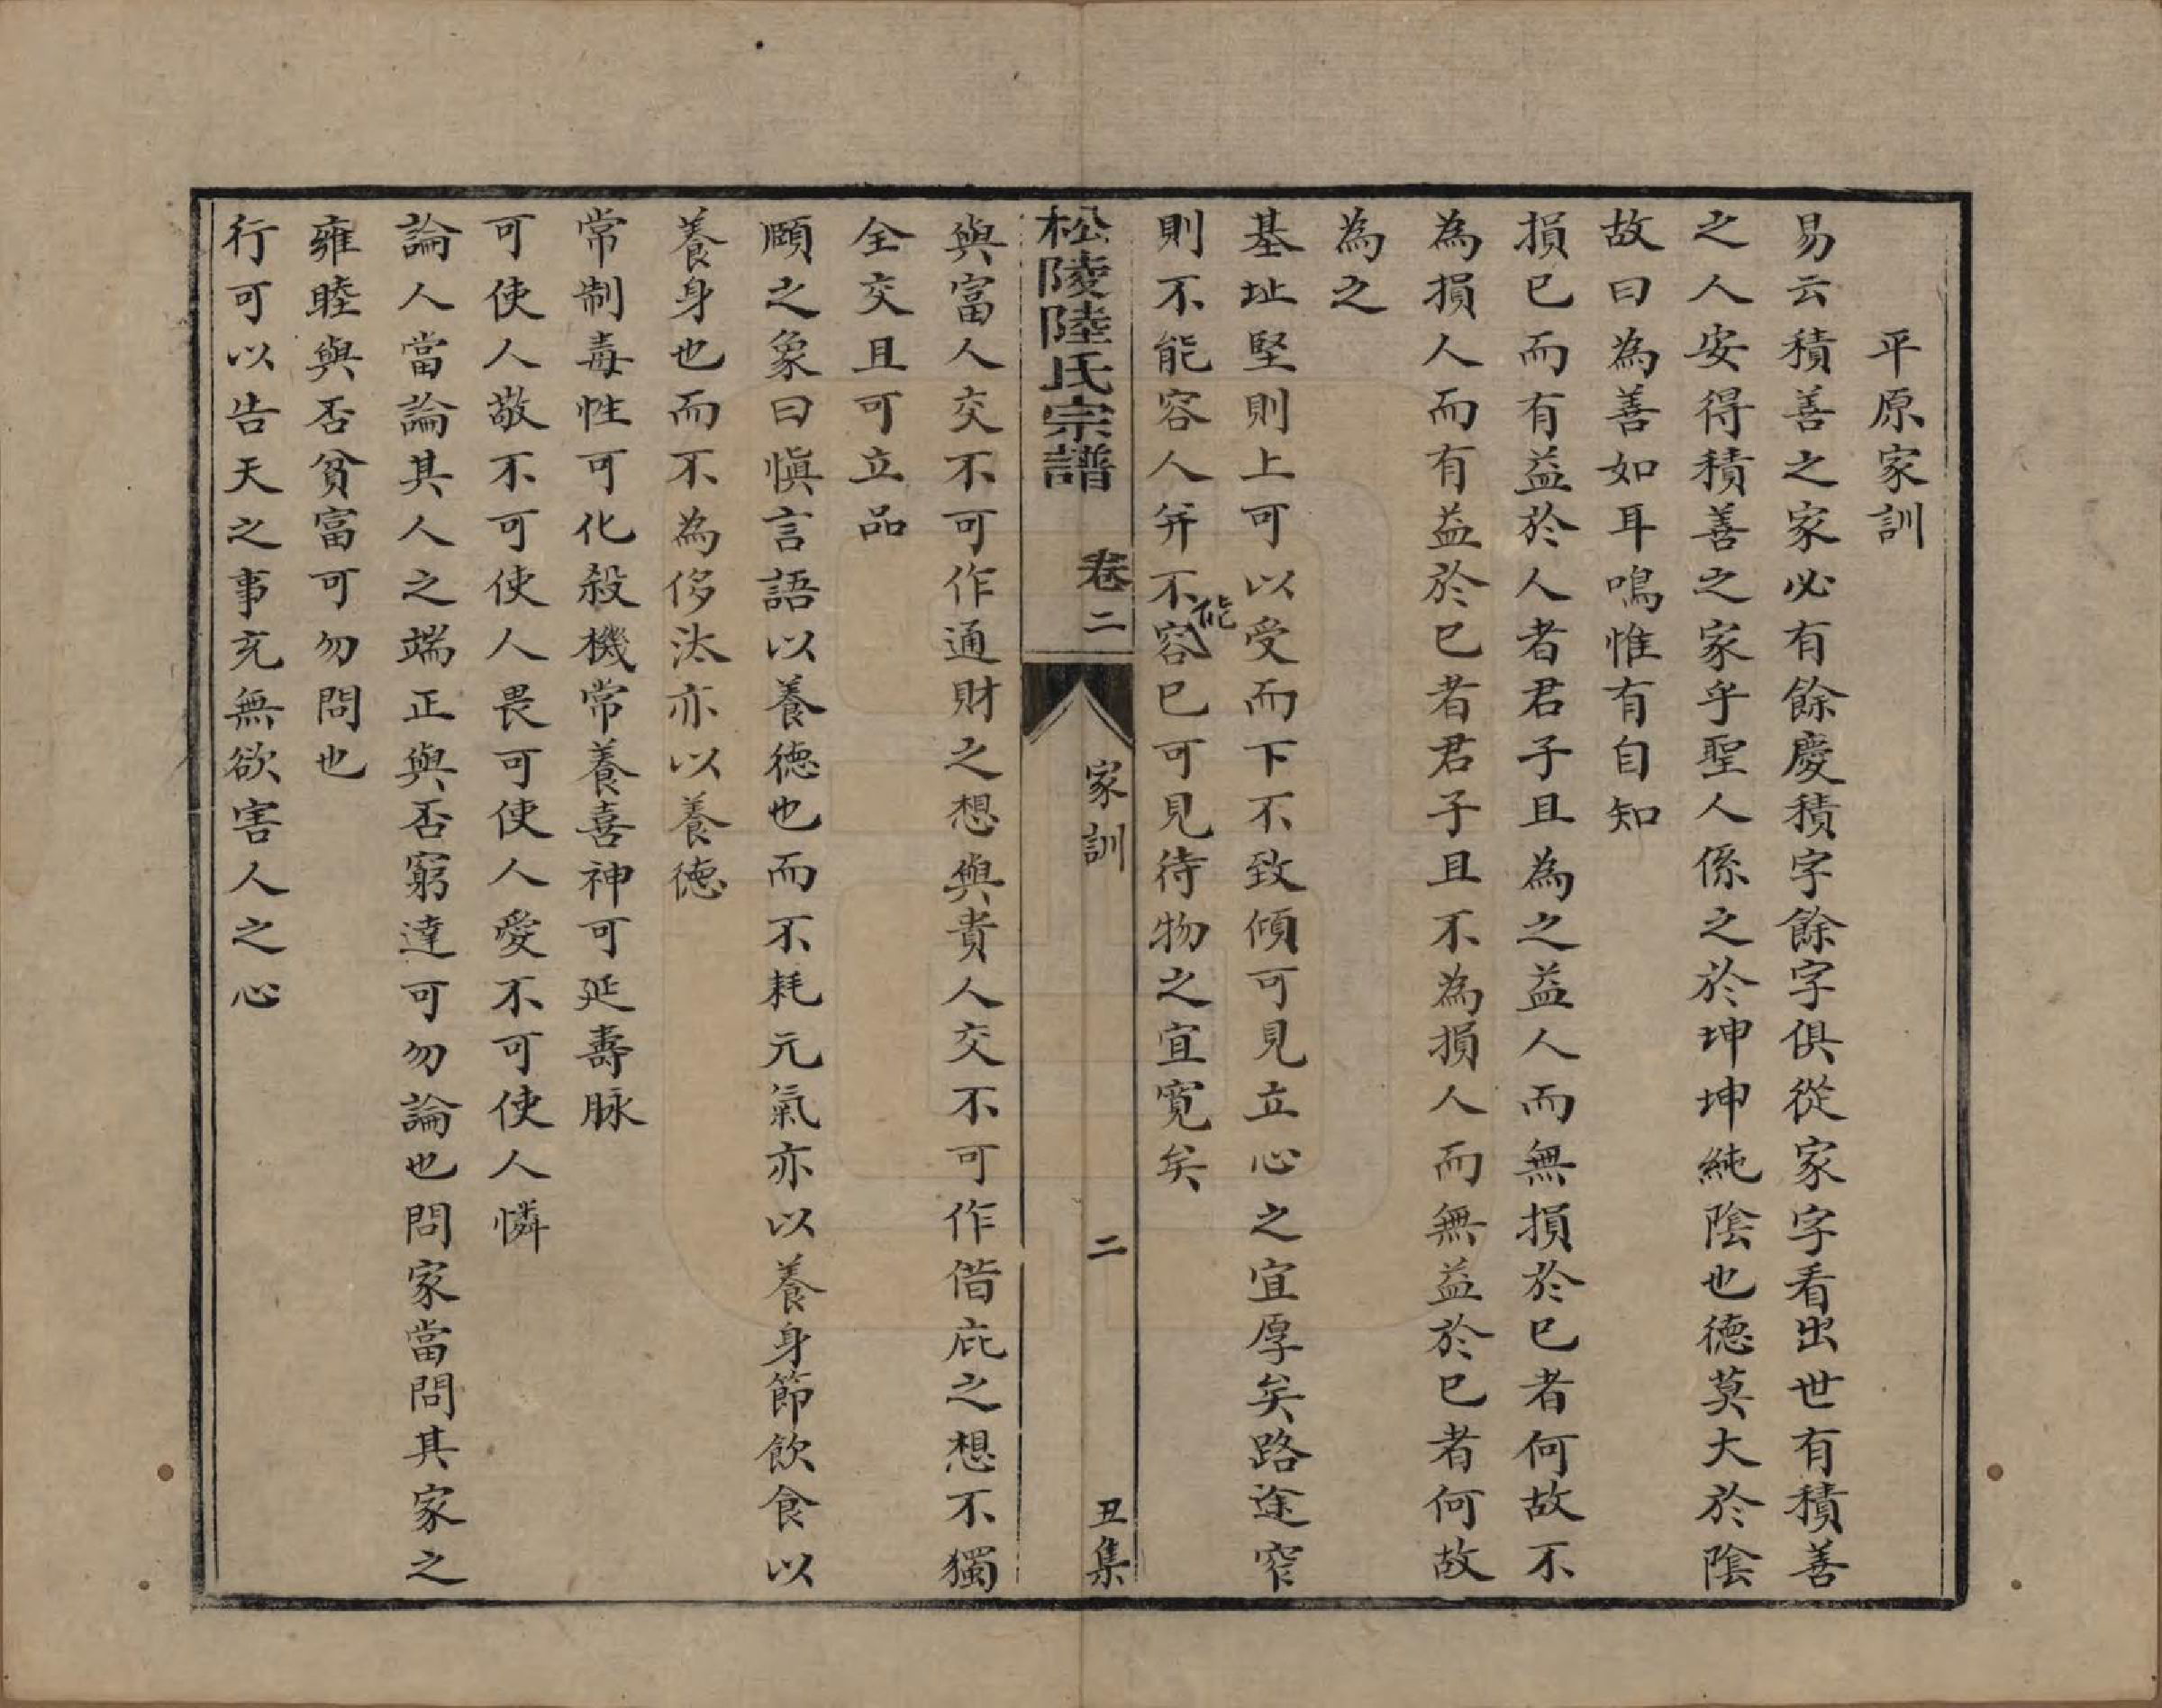 平原家訓
易云積善之家必有餘慶積字餘字俱從家字看出世有積善
之人安得積善之家乎聖人係之於坤坤純陰也德莫大於陰
故曰為善如耳鳴惟有自知
損己而有益於人者君子且為之益人而無損於己者何故不
為損人而有益於己者君子且不為損人而無益於己者何故
為之
基址堅則上可以受而下不致傾可見立心之宜厚矣路途窄
則不能容人并不能容己可見待物之宜寬矣
松陵陸氏宗譜 卷二 家訓 二 丑集
與富人交不可作通財之想與貴人交不可作借庇之想不獨
全交且可立品
頤之象曰愼言語以養德也而不耗元氣亦以養身節飲食以
養身也而不為侈汰亦以養德
常制毒性可化殺機常養喜神可延壽脉
可使人敬不可使人畏可使人愛不可使人憐
論人當論其人之端正與否窮達可勿論也問家當問其家之
雍睦與否貧富可勿問也
行可以告天之事充無欲害人之心